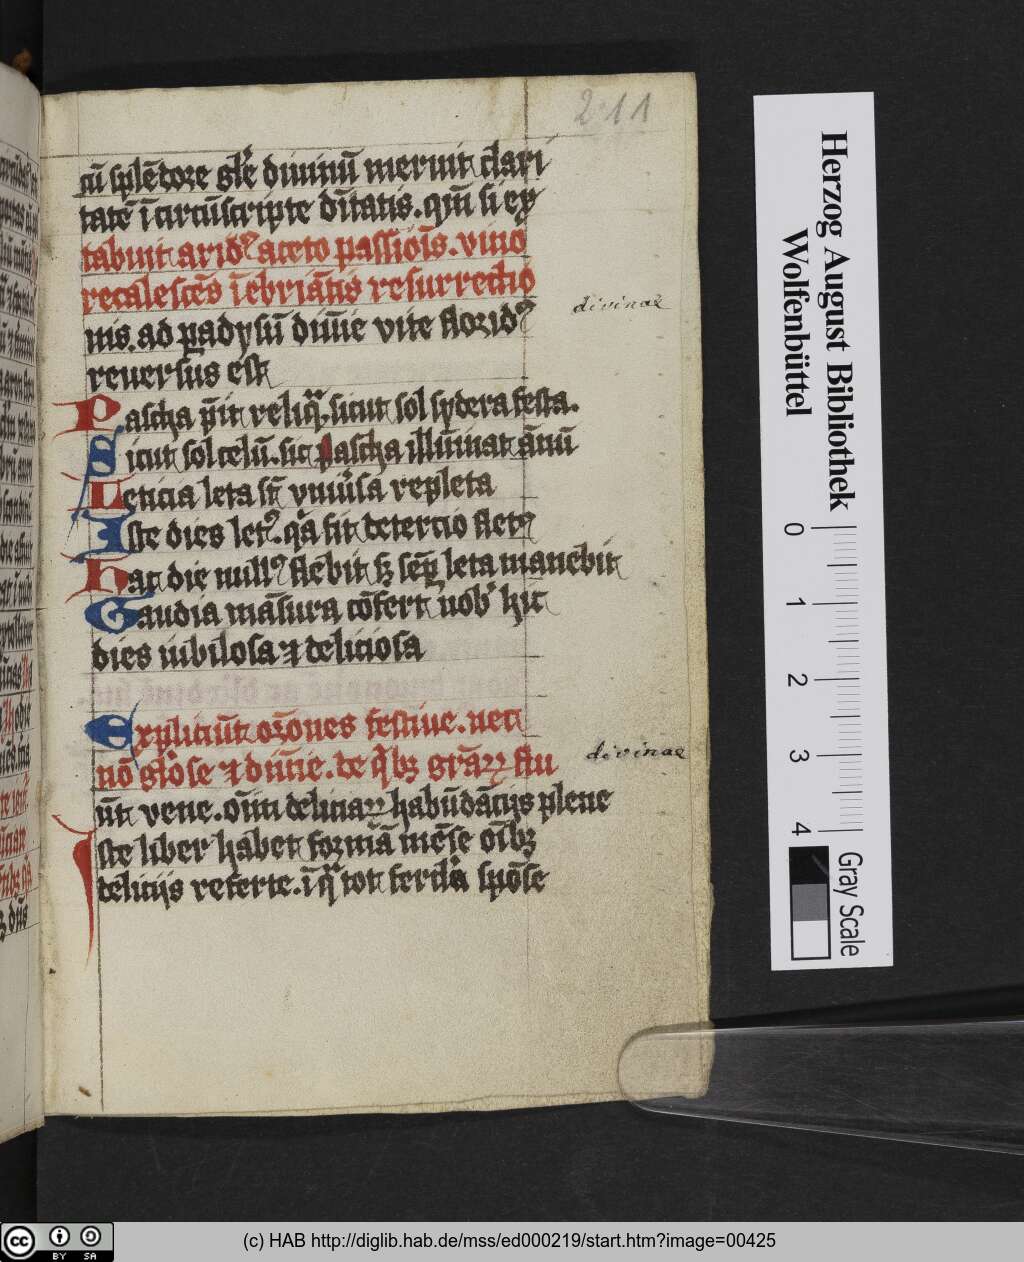 211
cū splēdore gl'e diuinū meruit clari
tatē ī circūscripte dītatis. qm̄ si ex
tabuit arid9 aceto passiōis. vino
recalescēs īebriātis resurrectio
divinae
nis. ad padysū diuīe vite florid9
reuersus est
Pascha p̄it reliq̄. sicut sol sydera festa.
Sicut sol celū. sic pascha illūinat ānū
Leticia leta st̄ vniūsa repleta
Iste dies let9. q̄a fit de tercio flet9
hac die null9 flebit sȝ sēp leta manebit
Gaudia māsura cōfert nob' hic
dies iubilosa ⁊ deliciosa
Expliciūt orōnes festiue. nec
nō gl'ose ⁊ diuīe. de q̄bȝ grāꝝ flu
divinae
ūt vene. oīm deliciaꝝ habūdācijs plene
Iste liber habet formā mēse oībȝ
delicijs referte. ī q̄ tot fercl'a spōse
Herzog August Bibliothek
Wolfenbüttel
0 1 2 3 4
Gray Scale
cc BY SA
(c) HAB http://diglib.hab.de/mss/ed000219/start.htm?image=00425